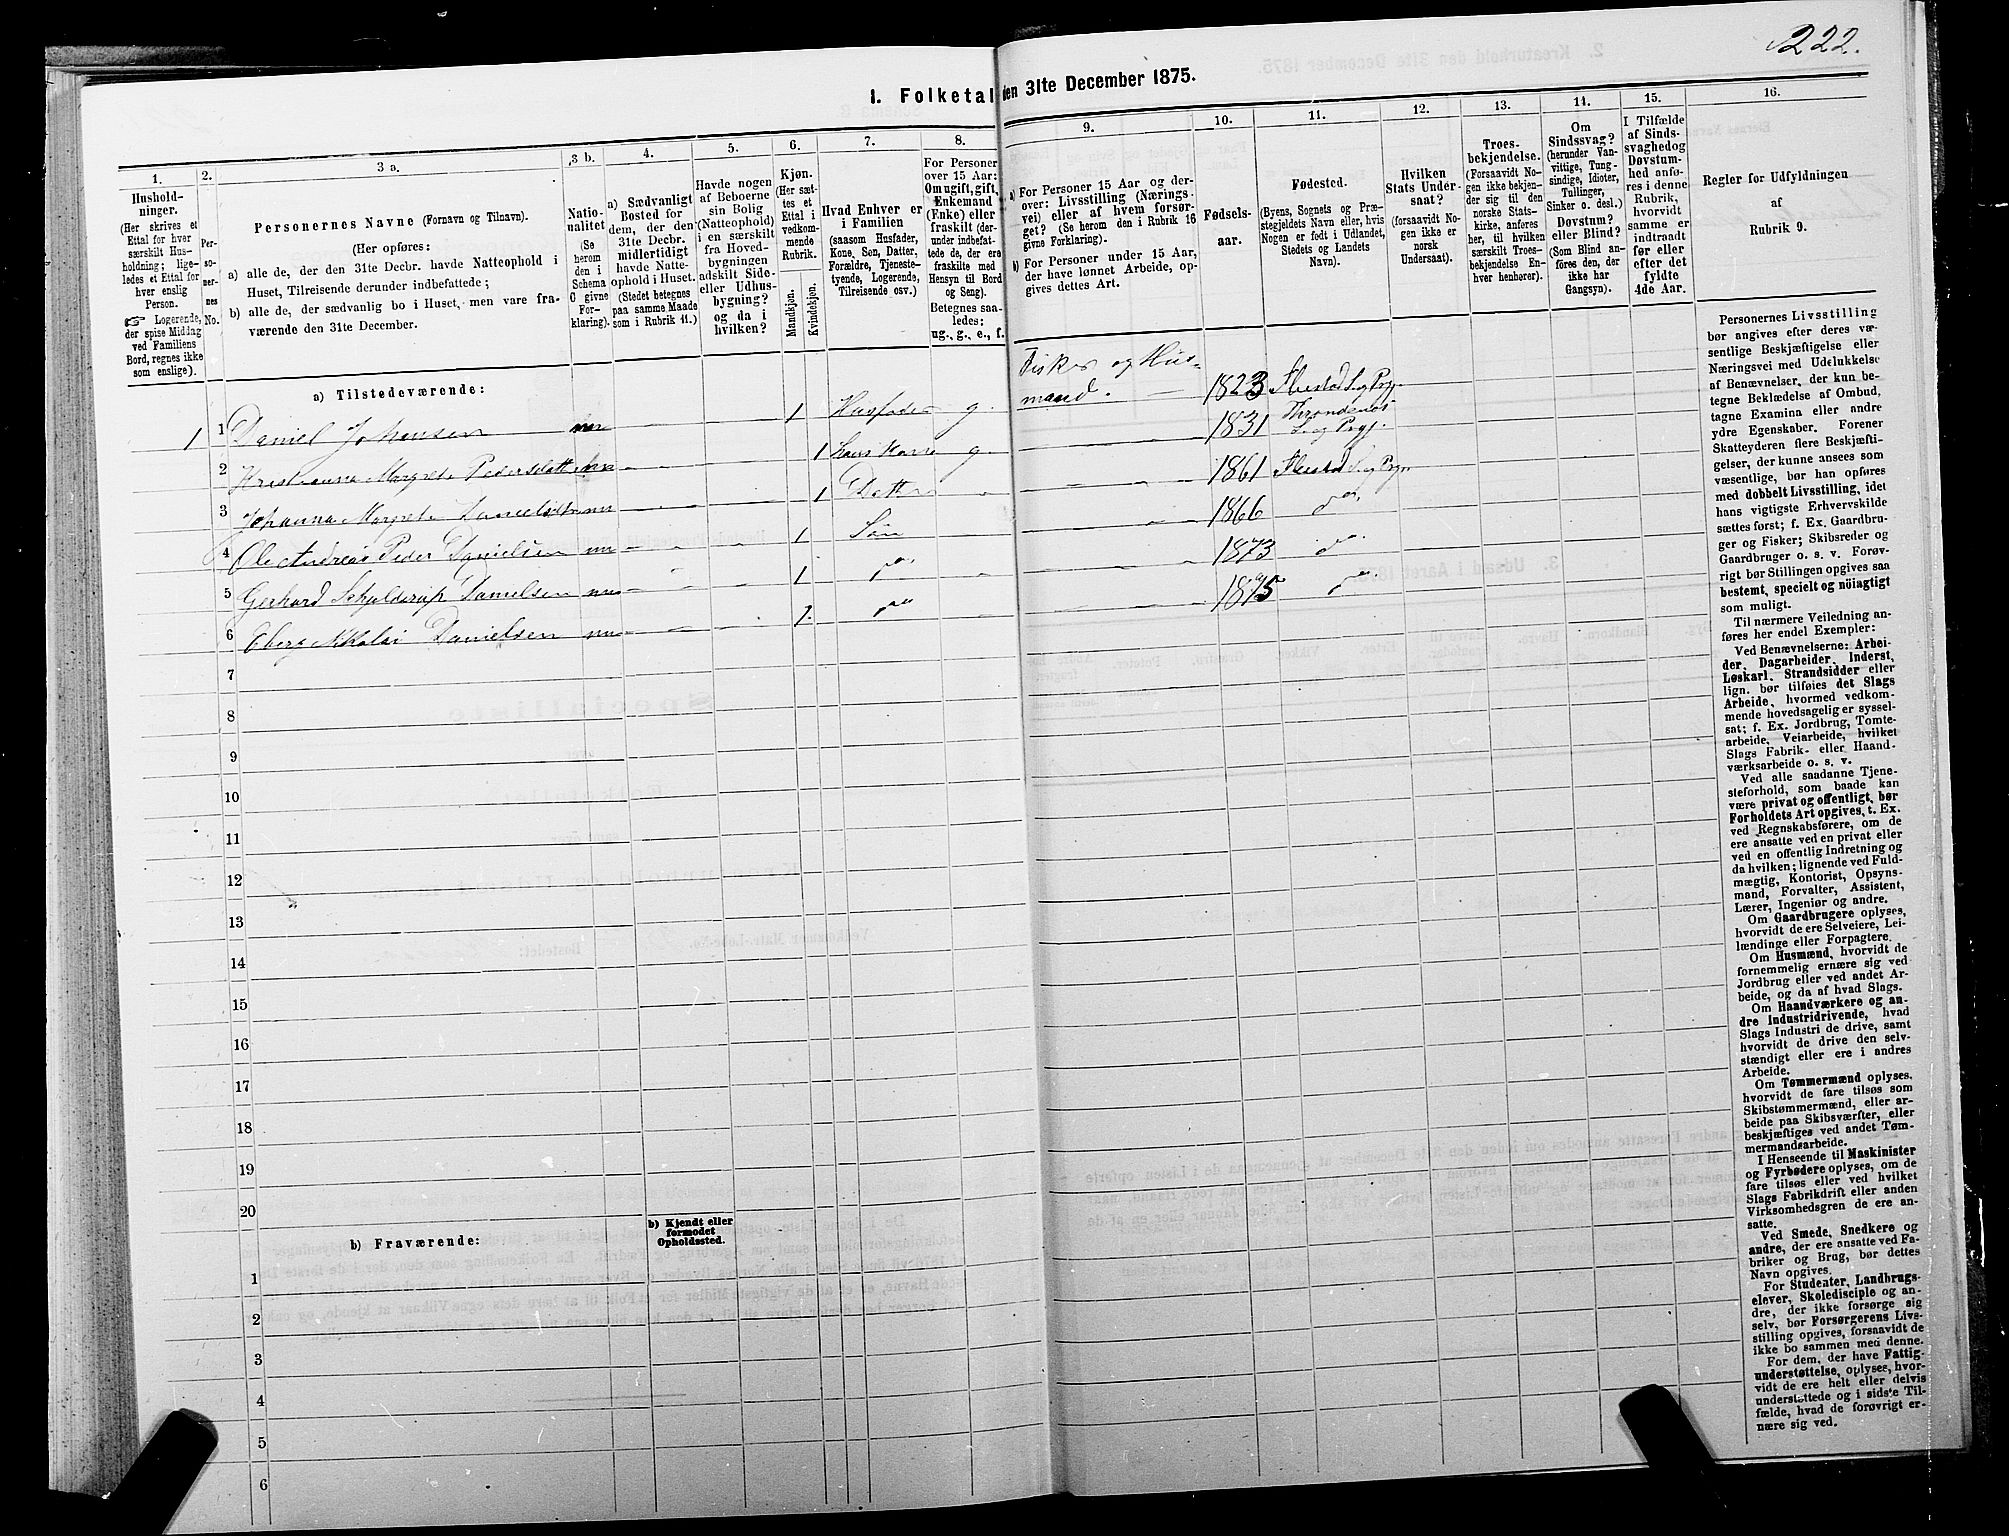 222.
I. Folketal den 31te December 1875.
1.
Hushold-
ninger.
(Her skrives et
Ettal for hver
særskilt Hus-
holdning; lige-
ledes et Ettal for
hver enslig
Person.
Logerende,
der spise Middag
ved Familiens
Bord, regnes ikke
som enslige).
2.
Per-
so-
ner-
nes
No.
3 a.
Personernes Navne (Fornavn og Tilnavn).
(Her opføres:
a) alle de, der den 31te Decbr. havde Natteophold i
Huset, Tilreisende derunder indbefattede;
b) alle de, der sædvanlig bo i Huset, men vare fra-
værende den 31te December.
3 b.
Natio-
nalitet
(Se
herom
den i
Schema
C givne
For-
klaring).
4.
a) Sædvanligt
Bosted for
dem, der den
31te Decbr.
midlertidigt
havde Natte-
ophold i Huset.
(Stedet betegnes
paa samme Maade
som i Rubrik 11.)
5.
Havde nogen
af Beboerne
sin Bolig
(Natteophold)
i en særskilt
fra Hoved-
bygningen
adskilt Side-
eller Udhus-
bygning?
og da i
hvilken?
6.
Kjøn.
(Her sæt-
tes et
Ettal i
vedkom-
mende
Rubrik.
Mandkjøn.
Kvindekjøn.
7.
Hvad Enhver er
i Familien
(saasom Husfader,
Kone, Søn, Datter,
Forældre, Tjeneste-
tyende, Logerende,
Tilreisende osv.)
8.
For Personer
over 15 Aar:
Om ugift, gift,
Enkemand
(Enke) eller
fraskilt (der-
under indbefat-
tede de, der ere
fraskilte med
Hensyn til Bord
og Seng).
Betegnes saa-
ledes:
ug., g., e., f.
9.
a) For Personer 15 Aar og der-
over: Livsstilling (Nærings-
vei) eller af hvem forsør-
get? (Se herom den i Rubrik 16
givne Forklaring).
b) For Personer under 15 Aar,
der have lønnet Arbeide, op-
gives dettes Art.
10.
Fødsels-
aar.
11.
Fødested.
(Byens, Sognets og Præ-
stegjeldets Navn eller, hvis
Nogen er født i Udlandet,
Stedets og Landets
Navn).
12.
Hvilken
Stats Under-
saat?
(forsaavidt No-
gen ikke er
norsk
Undersaat).
13.
Troes-
bekjendelse.
(Forsaavidt No-
gen ikke bekjen-
der sig til den
norske Stats-
kirke, anføres
her, til hvilken
særskilt Troes-
bekjendelse En-
hver henhører).
14.
Om
Sindssvag?
(herunder Van-
vittige, Tung-
sindige, Idioter,
Tullinger,
Sinker o. desl.)
Døvstum?
eller Blind?
(Som Blind an-
føres den, der
ikke har
Gangsyn).
15.
I Tilfælde
af Sinds-
svaghedog
Døvstum-
hed anfø-
res i denne
Rubrik,
hvorvidt
samme er
indtraadt
før eller
efter det
fyldte
4de Aar.
16.
Regler for Udfyldningen
af
Rubrik 9.
a) Tilstedeværende:
1 1 Daniel Johansen nu 1 Husfader g. Fisker og Hus-
mand. 1823 Ibestad S. og Prgj.
2 Kristianna Margrete Pedersdatt. nu 1 hans Kone g. 1831 Throndenæs
S. og Prgj.
3 Johanna Margrete Danielsdtr nu 1 Datter 1861 Ibestad S. og Prgj.
4 Ole Andreas Peder Danielsen nu 1 Søn 1866 do.
5 Gerhard Schjelderup Danielsen nu 1 do. 1873 do.
6 Eberg Nikolai Danielsen nu 1. do. 1875 do.
7
8
9
10
11
12
13
14
15
16
17
18
19
20
b) Fraværende:
b) Kjendt eller
formodet
Opholdssted.
1
2
3
4
5
6
Personernes Livsstilling
bør angives efter deres væ-
sentlige Beskjæftigelse eller
Næringsvei med Udelukkelse
af Benævnelser, der kun be-
tegne Beklædelse af Ombud,
tagne Examina eller andre
ydre Egenskaber. Forener
Skatteyderen flere Beskjæfti-
gelser, der kunne ansees som
væsentlige, bør han opføres
med dobbelt Livsstilling, idet
hans vigtigste Erhvervskilde
sættes først; f. Ex. Gaardbru-
ger og Fisker; Skibsreder og
Gaardbruger o. s. v. Forøv-
rigt bør Stillingen opgives saa
bestemt, specielt og nöiagtigt
som muligt.
Til nærmere Veiledning an-
føres her endel Exempler:
Ved Benævnelserne: Arbei-
der, Dagarbeider, Inderst,
Løskarl, Strandsidder eller
lign. bør tilføies det Slags
Arbeide, hvormed vedkom-
mende hovedsagelig er syssel-
sat; f. Ex. Jordbrug, Tomte-
arbeide, Veiarbeide, hvilket
Slags Fabrik- eller Haand-
værksarbeide o. s. v.
Ved alle saadanne Tjene-
steforhold, som baade kan
være privat og offentligt, bør
Forholdets Art opgives, t. Ex.
ved Regnskabsførere, om de
ere ansatte ved en privat eller
ved en offentlig Indretning og
da hvilken; lignende ved Fuld-
mægtig, Kontorist, Opsyns-
mand, Forvalter, Assistent,
Lærer, Ingeniør og andre.
Om Gaardbrugere oplyses,
hvorvidt de ere Selveiere, Lei-
lændinge eller Forpagtere.
Om Husmænd, hvorvidt de
fornemmelig ernære sig ved
Jordbrug eller ved andet Ar-
beide, og da af hvad Slags.
Om Haandværkere og an-
dre Industridrivende, hvad
Slags Industri de drive, samt
hvorvidt de drive den selv-
stændigt eller ere i andres
Arbeide.
Om Tømmermænd oplyses,
hvorvidt de fare tilsøs som
Skibstømmermænd, eller ar-
beide paa Skibsværfter, eller
beskjæftiges ved andet Tøm-
mermandsarbeide.
I Henseende til Maskinister
og Fyrbødere oplyses, om de
fare tilsøs eller ved hvilket
Slags Fabrikdrift eller anden
Virksomhedsgren de ere an-
satte.
Ved Smede, Snedkere og
andre, der ere ansatte ved Fa-
briker og Brug, bør dettes
Navn opgives.
For Studenter, Landbrugs-
elever, Skoledisciple og an-
dre, der ikke forsørge sig
selv, bør Forsørgerens Livs-
stilling opgives, forsaavidt de
ikke bo sammen med denne.
For dem, der have Fattig-
understøttelse, oplyses, hvor-
vidt de ere helt eller delvis
understøttede og i sidste Til-
fælde, hvad de forøvrigt er-
nære sig ved.